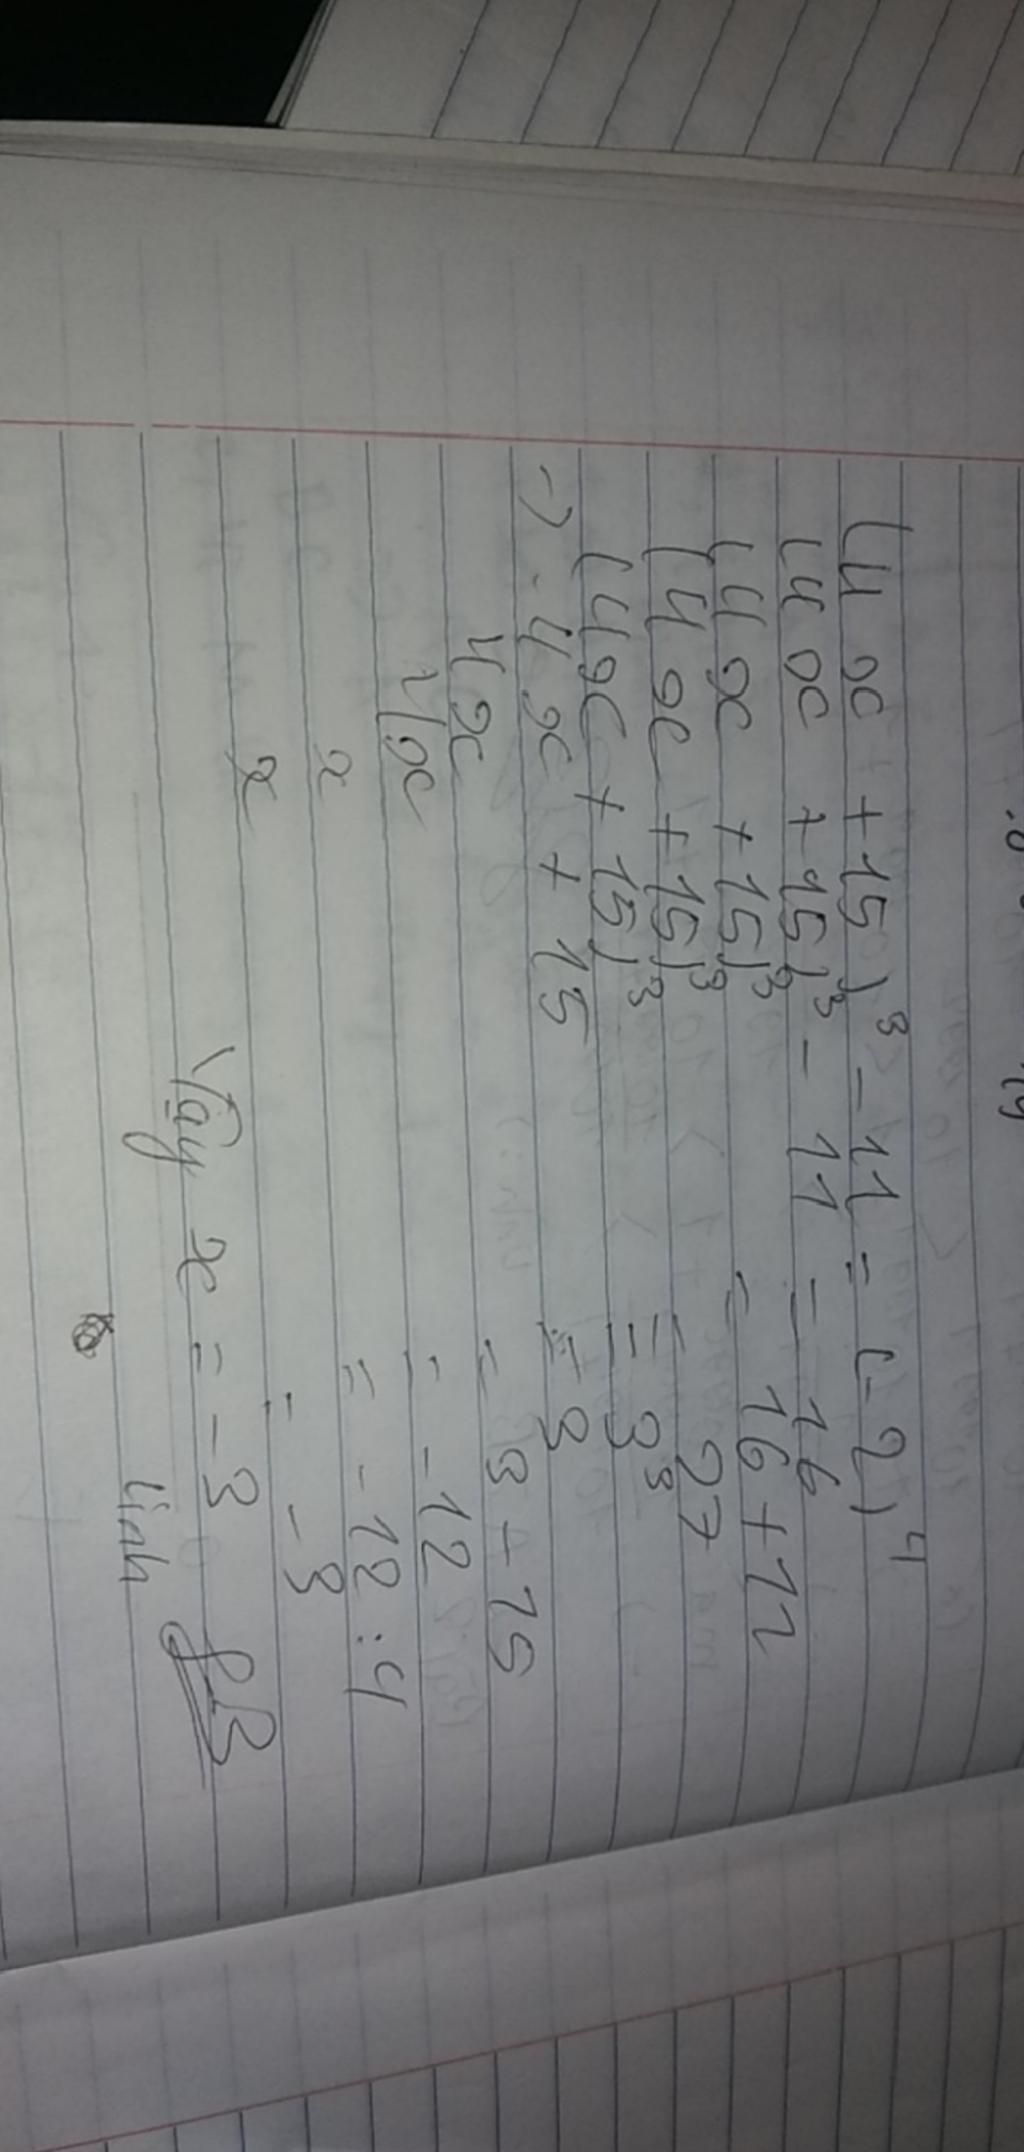 (4x + 15)³ - 11 = (-2)⁴
(4x + 15)³ - 11 = 16
(4x + 15)³ = 16 + 11
(4x + 15)³ = 27
(4x + 15)³ = 3³
-) 4x + 15 = 3
4x = 3 - 15
4x = -12
x = -12 : 4
x = -3
Vậy x = -3
linh